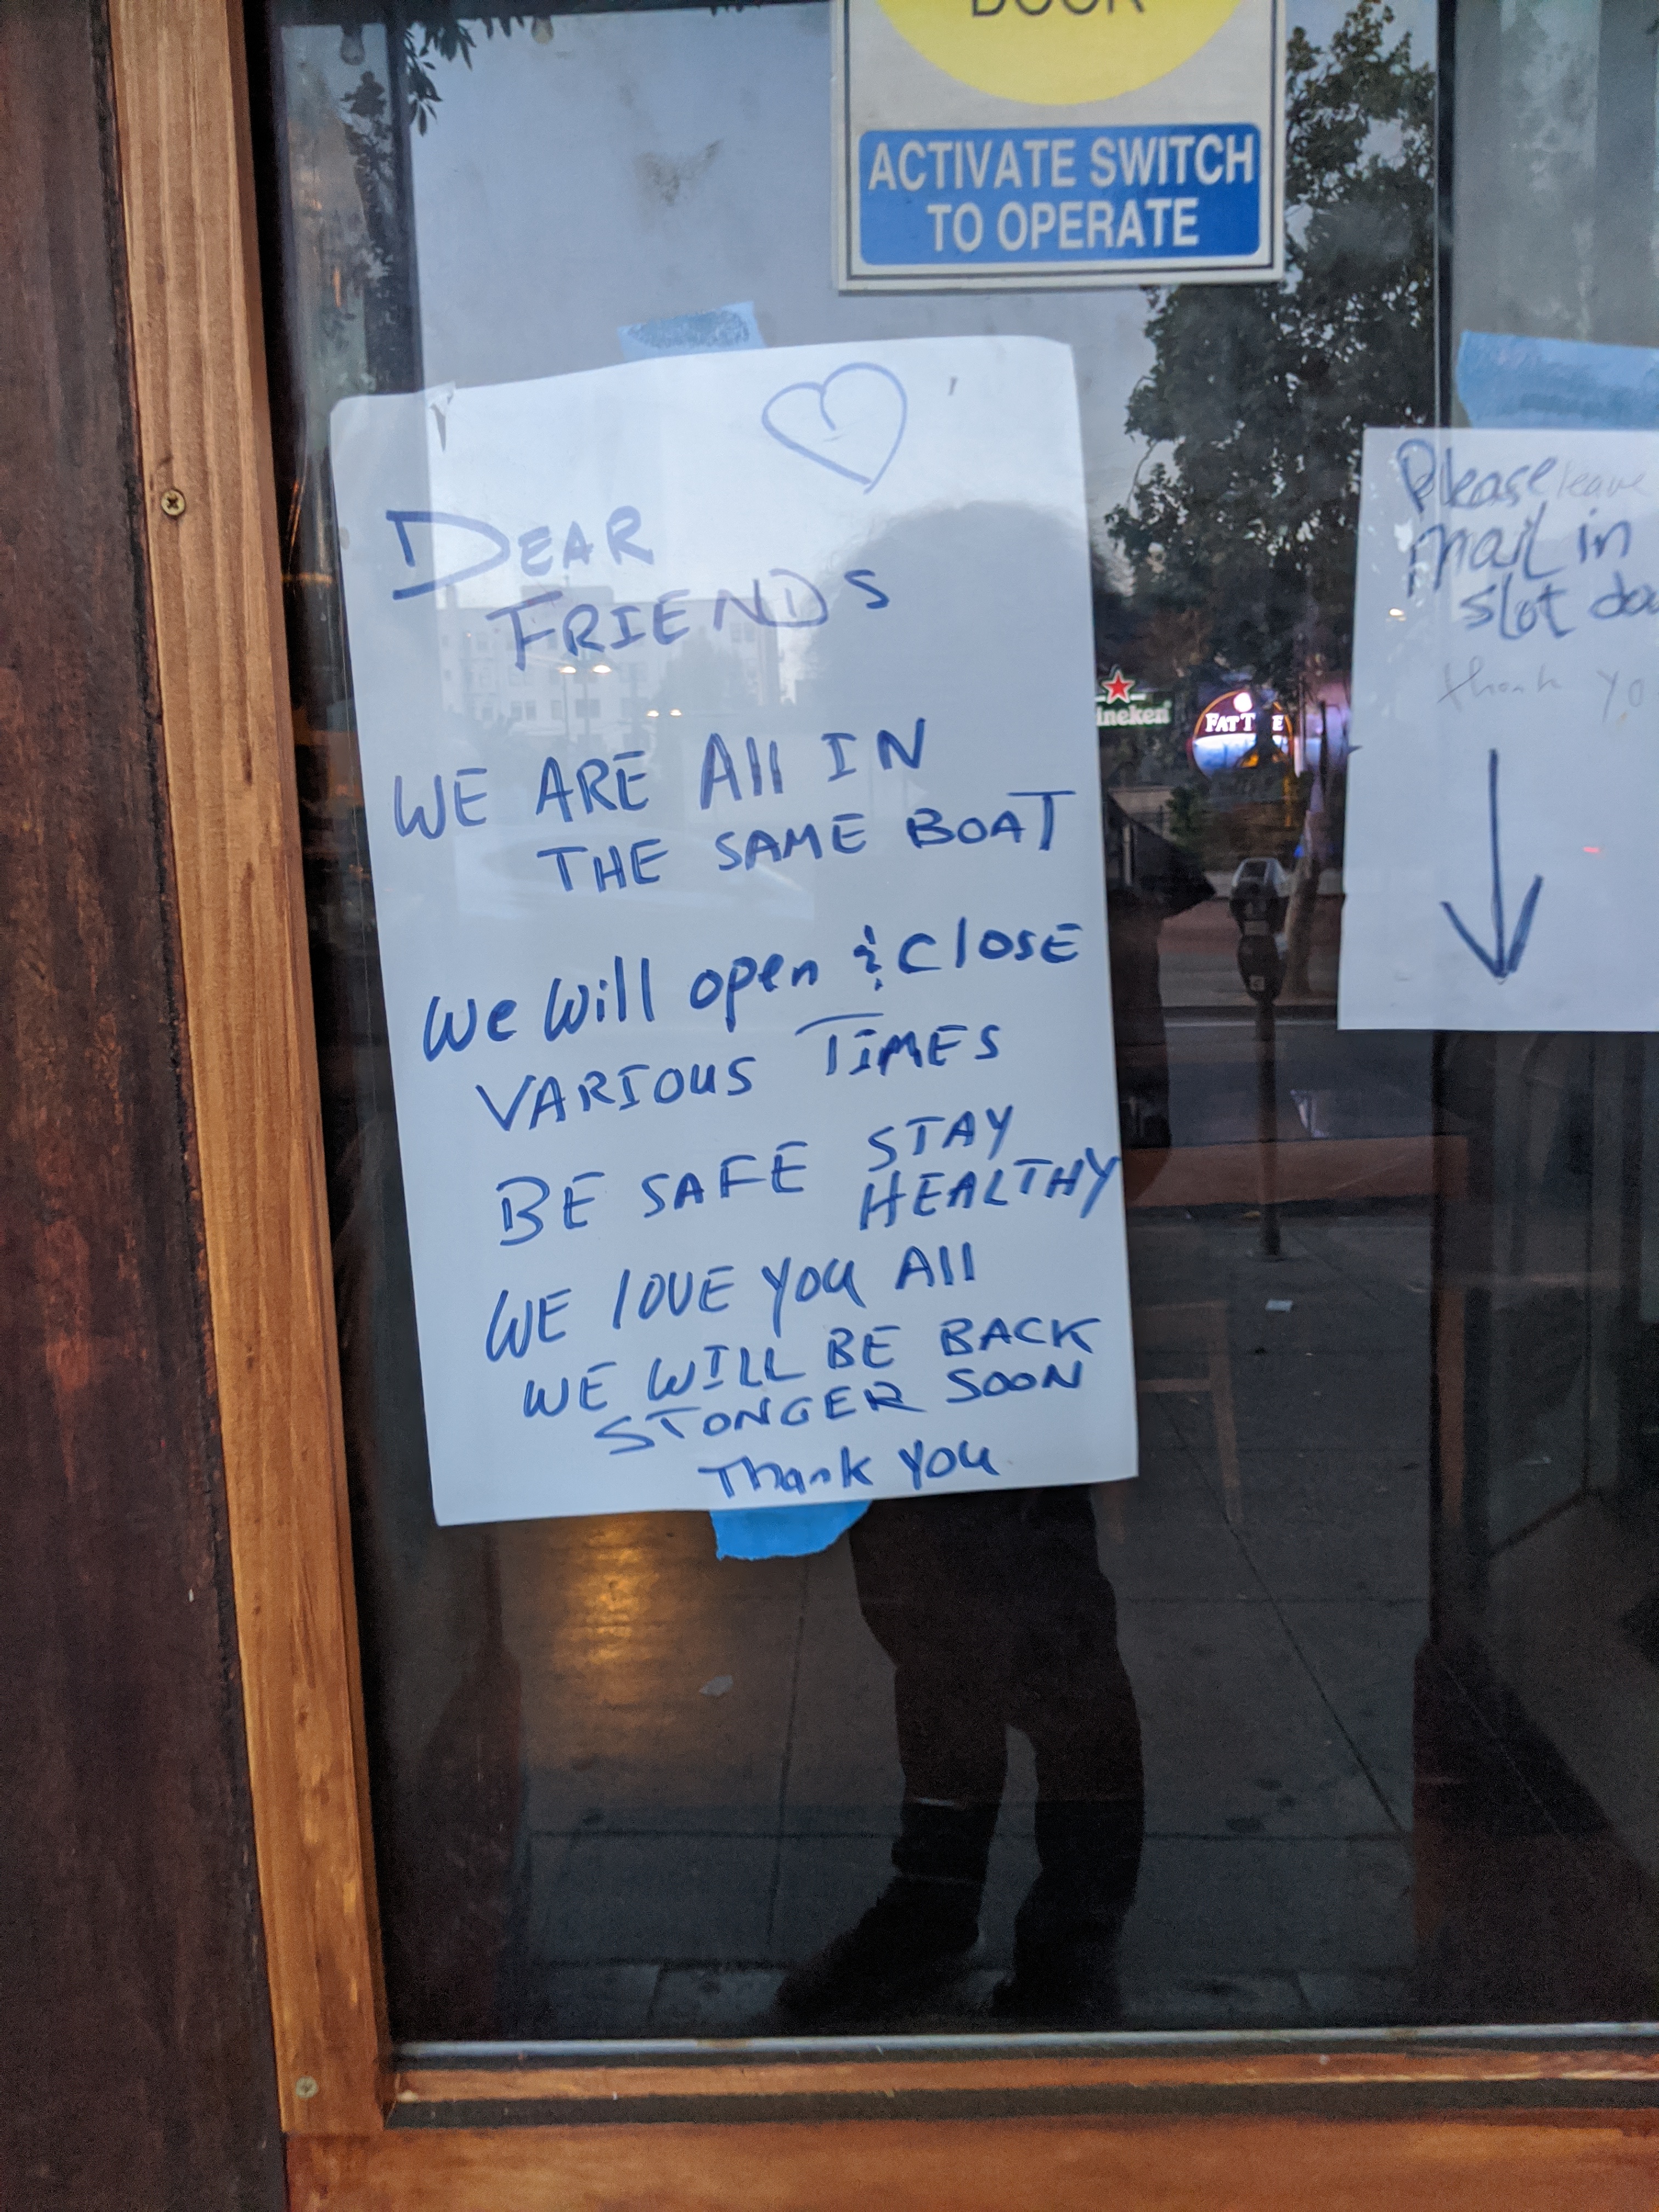 DOOR
ACTIVATE SWITCH
TO OPERATE
DEAR
FRIENDS
WE ARE All IN
THE SAME BOAT
We Will open & ClOSE
VARIOUS TIMES
BE SAFE STAY
HEALTHY
WE lOVE YOU All
WE WILL BE BACK
STONGER SOON
Thank You
Please leave
Mail in
slot
thank
ineken
FAT T E